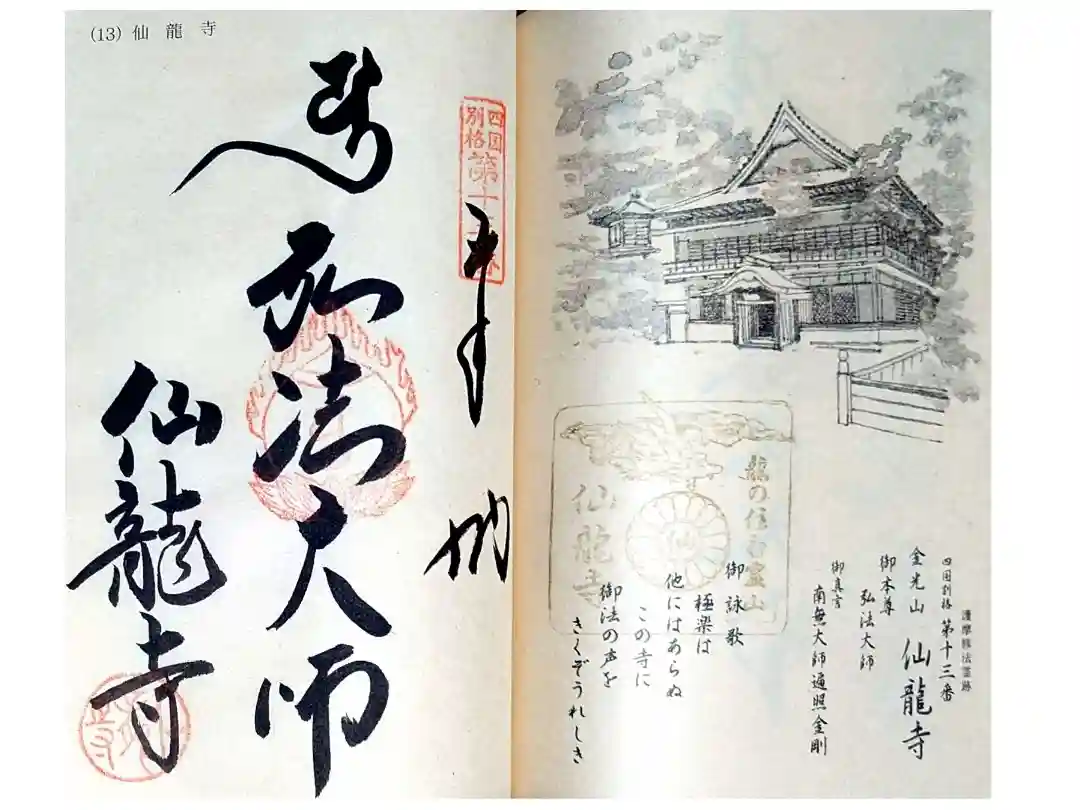 護摩修法霊跡
四国別格 第十三番
金光山 仙龍寺
御本尊
弘法大師
御真言
南無大師遍照金剛
御詠歌
極楽は
他にはあらぬ
この寺に
御法の声を
きくぞうれしき
仙
仙龍寺
(13) 仙龍寺
四国
別格
第十
奉納
弘法大師
仙龍寺